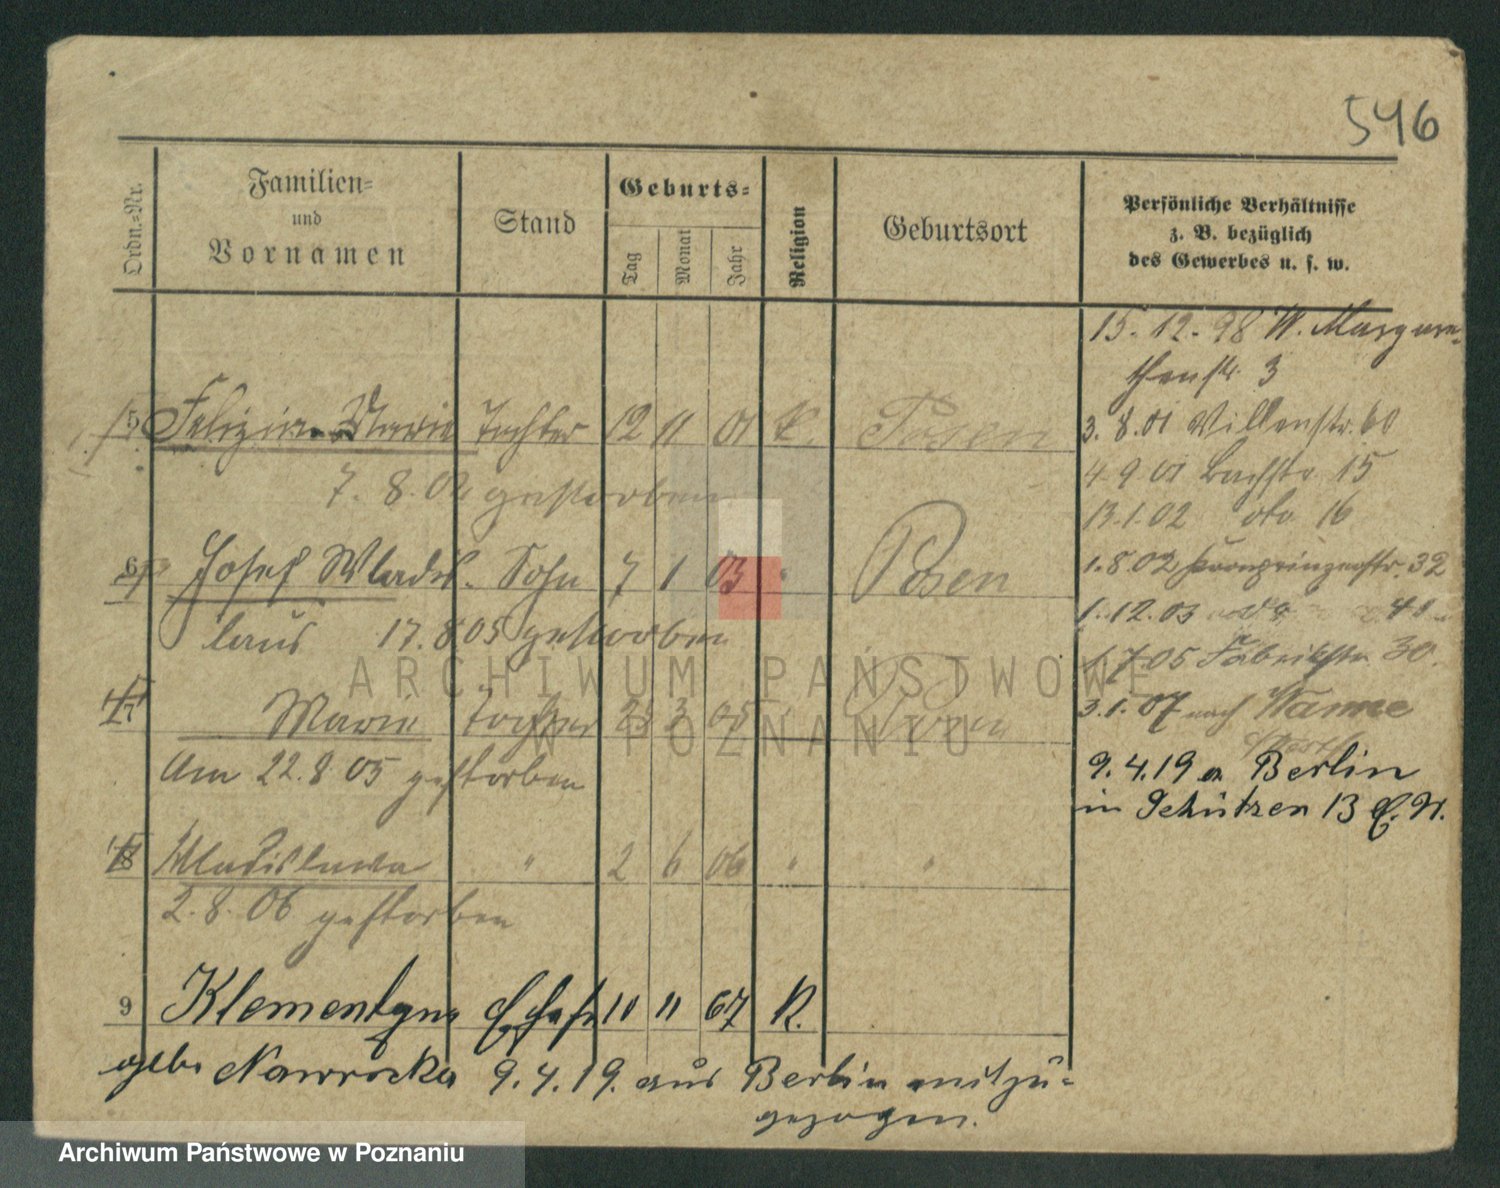 546
Ordn.-Nr.
Familien-
und
Vornamen
Stand
Geburts-
Tag
Monat
Jahr
Religion
Geburtsort
Persönliche Verhältnisse
z. B. bezüglich
des Gewerbes u. s. w.
15.12.98 W. Margare-
thenstr. 3
5 Felizia Maria Tochter 12 11 01 K. Posen
3.8.01 Villenstr. 60
7.8.02 gestorben
4.9.01 Bachstr 15
13.1.02 dto 16
6 Josef Wladis- Sohn 7 1 03 " Posen
1.8.02 Kronprinzenstr. 32
laus 17.8.05 gestorben
1.12.03 41
1.7.05 Fabrikstr. 30.
7 Marie Tochter 25 3 05 Posen
3.1.07 nach Wanne
Am 22.8.05 gestorben
9.4.19 a Berlin
in Schützen 13 E. W.
8 Wladislawa " 2 6 06 " "
2.8.06 gestorben
9 Klementyna Ehefr 10 11 67 K.
gebr Nawrocka 9.4.19. aus Berlin mitzu-
gezogen.
ARCHIWUM PAŃSTWOWE
W POZNANIU
Archiwum Państwowe w Poznaniu